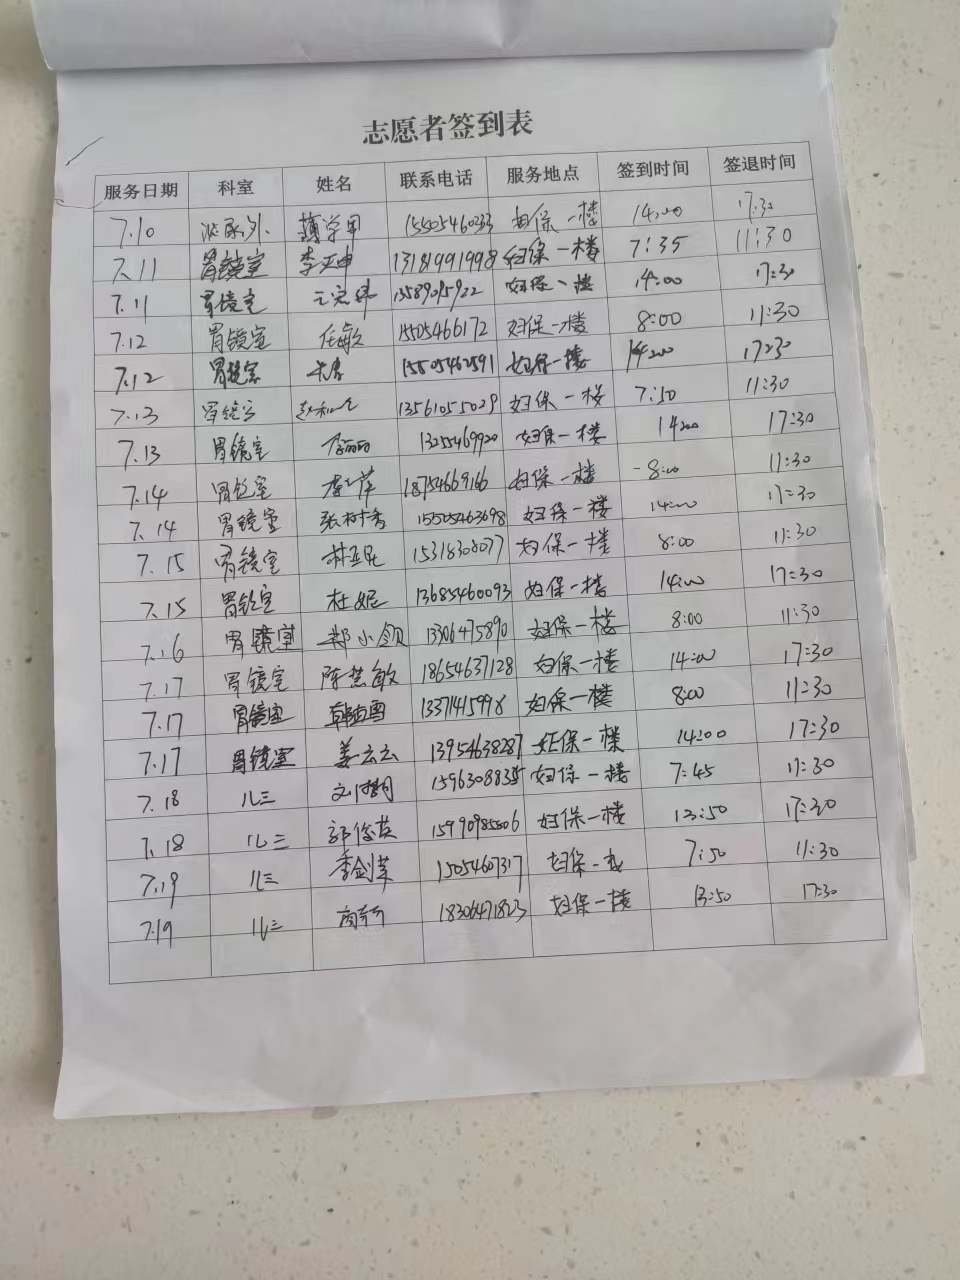 志愿者签到表
服务日期 科室 姓名 联系电话 服务地点 签到时间 签退时间
7.10 泌尿外 薄学甲 15505460233 妇保一楼 14:00 17:30
7.11 胃镜室 13181991998 妇保一楼 7:35 11:30
7.11 胃镜室 13589095922 妇保一楼 14:00 17:30
7.12 胃镜室 任敏 15505466172 妇保一楼 8:00 11:30
7.12 胃镜室 15505462591 妇保一楼 14:00 17:30
7.13 胃镜室 13561055029 妇保一楼 7:50 11:30
7.13 胃镜室 李丽丽 13255469920 妇保一楼 14:00 17:30
7.14 胃镜室 18754669166 妇保一楼 8:00 11:30
7.14 胃镜室 张树秀 15505463698 妇保一楼 14:00 17:30
7.15 胃镜室 15318308077 妇保一楼 8:00 11:30
7.15 胃镜室 杜妮 13685460093 妇保一楼 14:00 17:30
7.16 胃镜室 郑小领 13306475890 妇保一楼 8:00 11:30
7.17 胃镜室 陈慧敏 18654637128 妇保一楼 14:00 17:30
7.17 胃镜室 13371415998 妇保一楼 8:00 11:30
7.17 胃镜室 姜云云 13954638287 妇保一楼 14:00 17:30
7.18 儿三 妇保一楼 7:45 11:30
7.18 儿三 郭俊英 妇保一楼 13:50 17:30
7.19 儿三 李剑苹 15054607317 妇保一楼 7:50 11:30
7.19 儿三 18306471823 妇保一楼 13:50 17:30